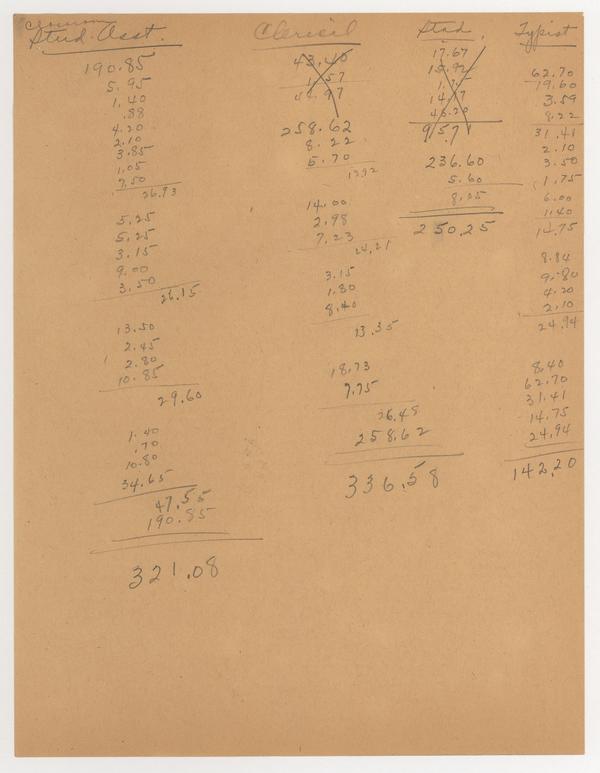 Stud. Asst.
190.85
5.95
1.40
.88
4.20
2.10
3.85
1.05
7.50
26.93
5.25
5.25
3.15
9.00
3.50
26.15
13.50
2.45
2.80
10.85
29.60
1.40
.70
10.80
34.65
47.55
190.85
321.08
Clerical
43.40
1.57
44.97
258.62
8.22
5.70
1392
14.00
2.98
7.23
24.21
3.15
1.80
8.40
13.35
18.73
7.75
26.48
258.62
336.58
Stud.
17.67
236.60
5.60
8.05
250.25
Typist
62.70
19.60
3.59
8.22
31.41
2.10
3.50
1.75
6.00
1.40
14.75
8.84
9.80
4.20
2.10
24.94
8.40
62.70
31.41
14.75
24.94
142.20